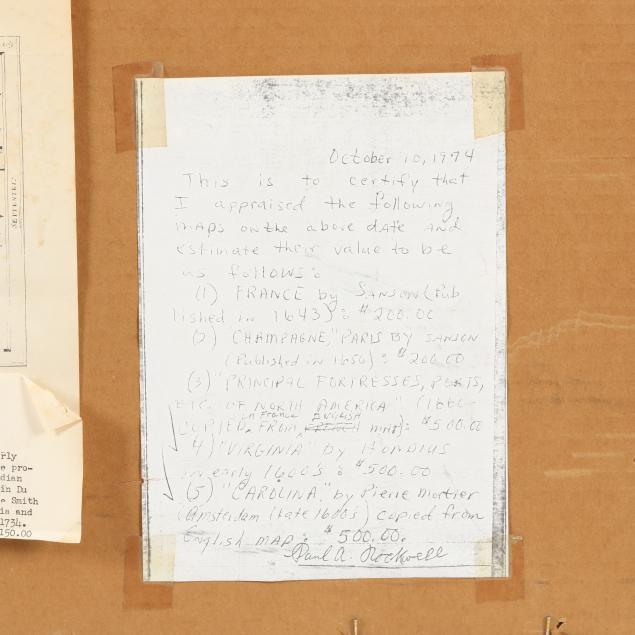 October 10, 1974
This is to certify that
I appraised the following
maps on the above date and
estimate their value to be
as follows:
(1) FRANCE by SANSON (Pub
lished in 1643): $200.00
(2) CHAMPAGNE, "PARIS BY SANSON
(Published in 1650): $200.00
(3) "PRINCIPAL FORTRESSES, PORTS,
ETC. OF NORTH AMERICA" (
in France ENGLISH
COPIED FROM FRENCH map): $500.00
4) "VIRGINIA" by HONDIUS
in early 1600's: $500.00
(5) "CAROLINA," by Pierre Mortier
(Amsterdam (late 1600s) copied from
English MAP: $500.00.
Paul A. Rockwell
ply
e pro-
dian
in Du
Smith
ia and
1734.
150.00